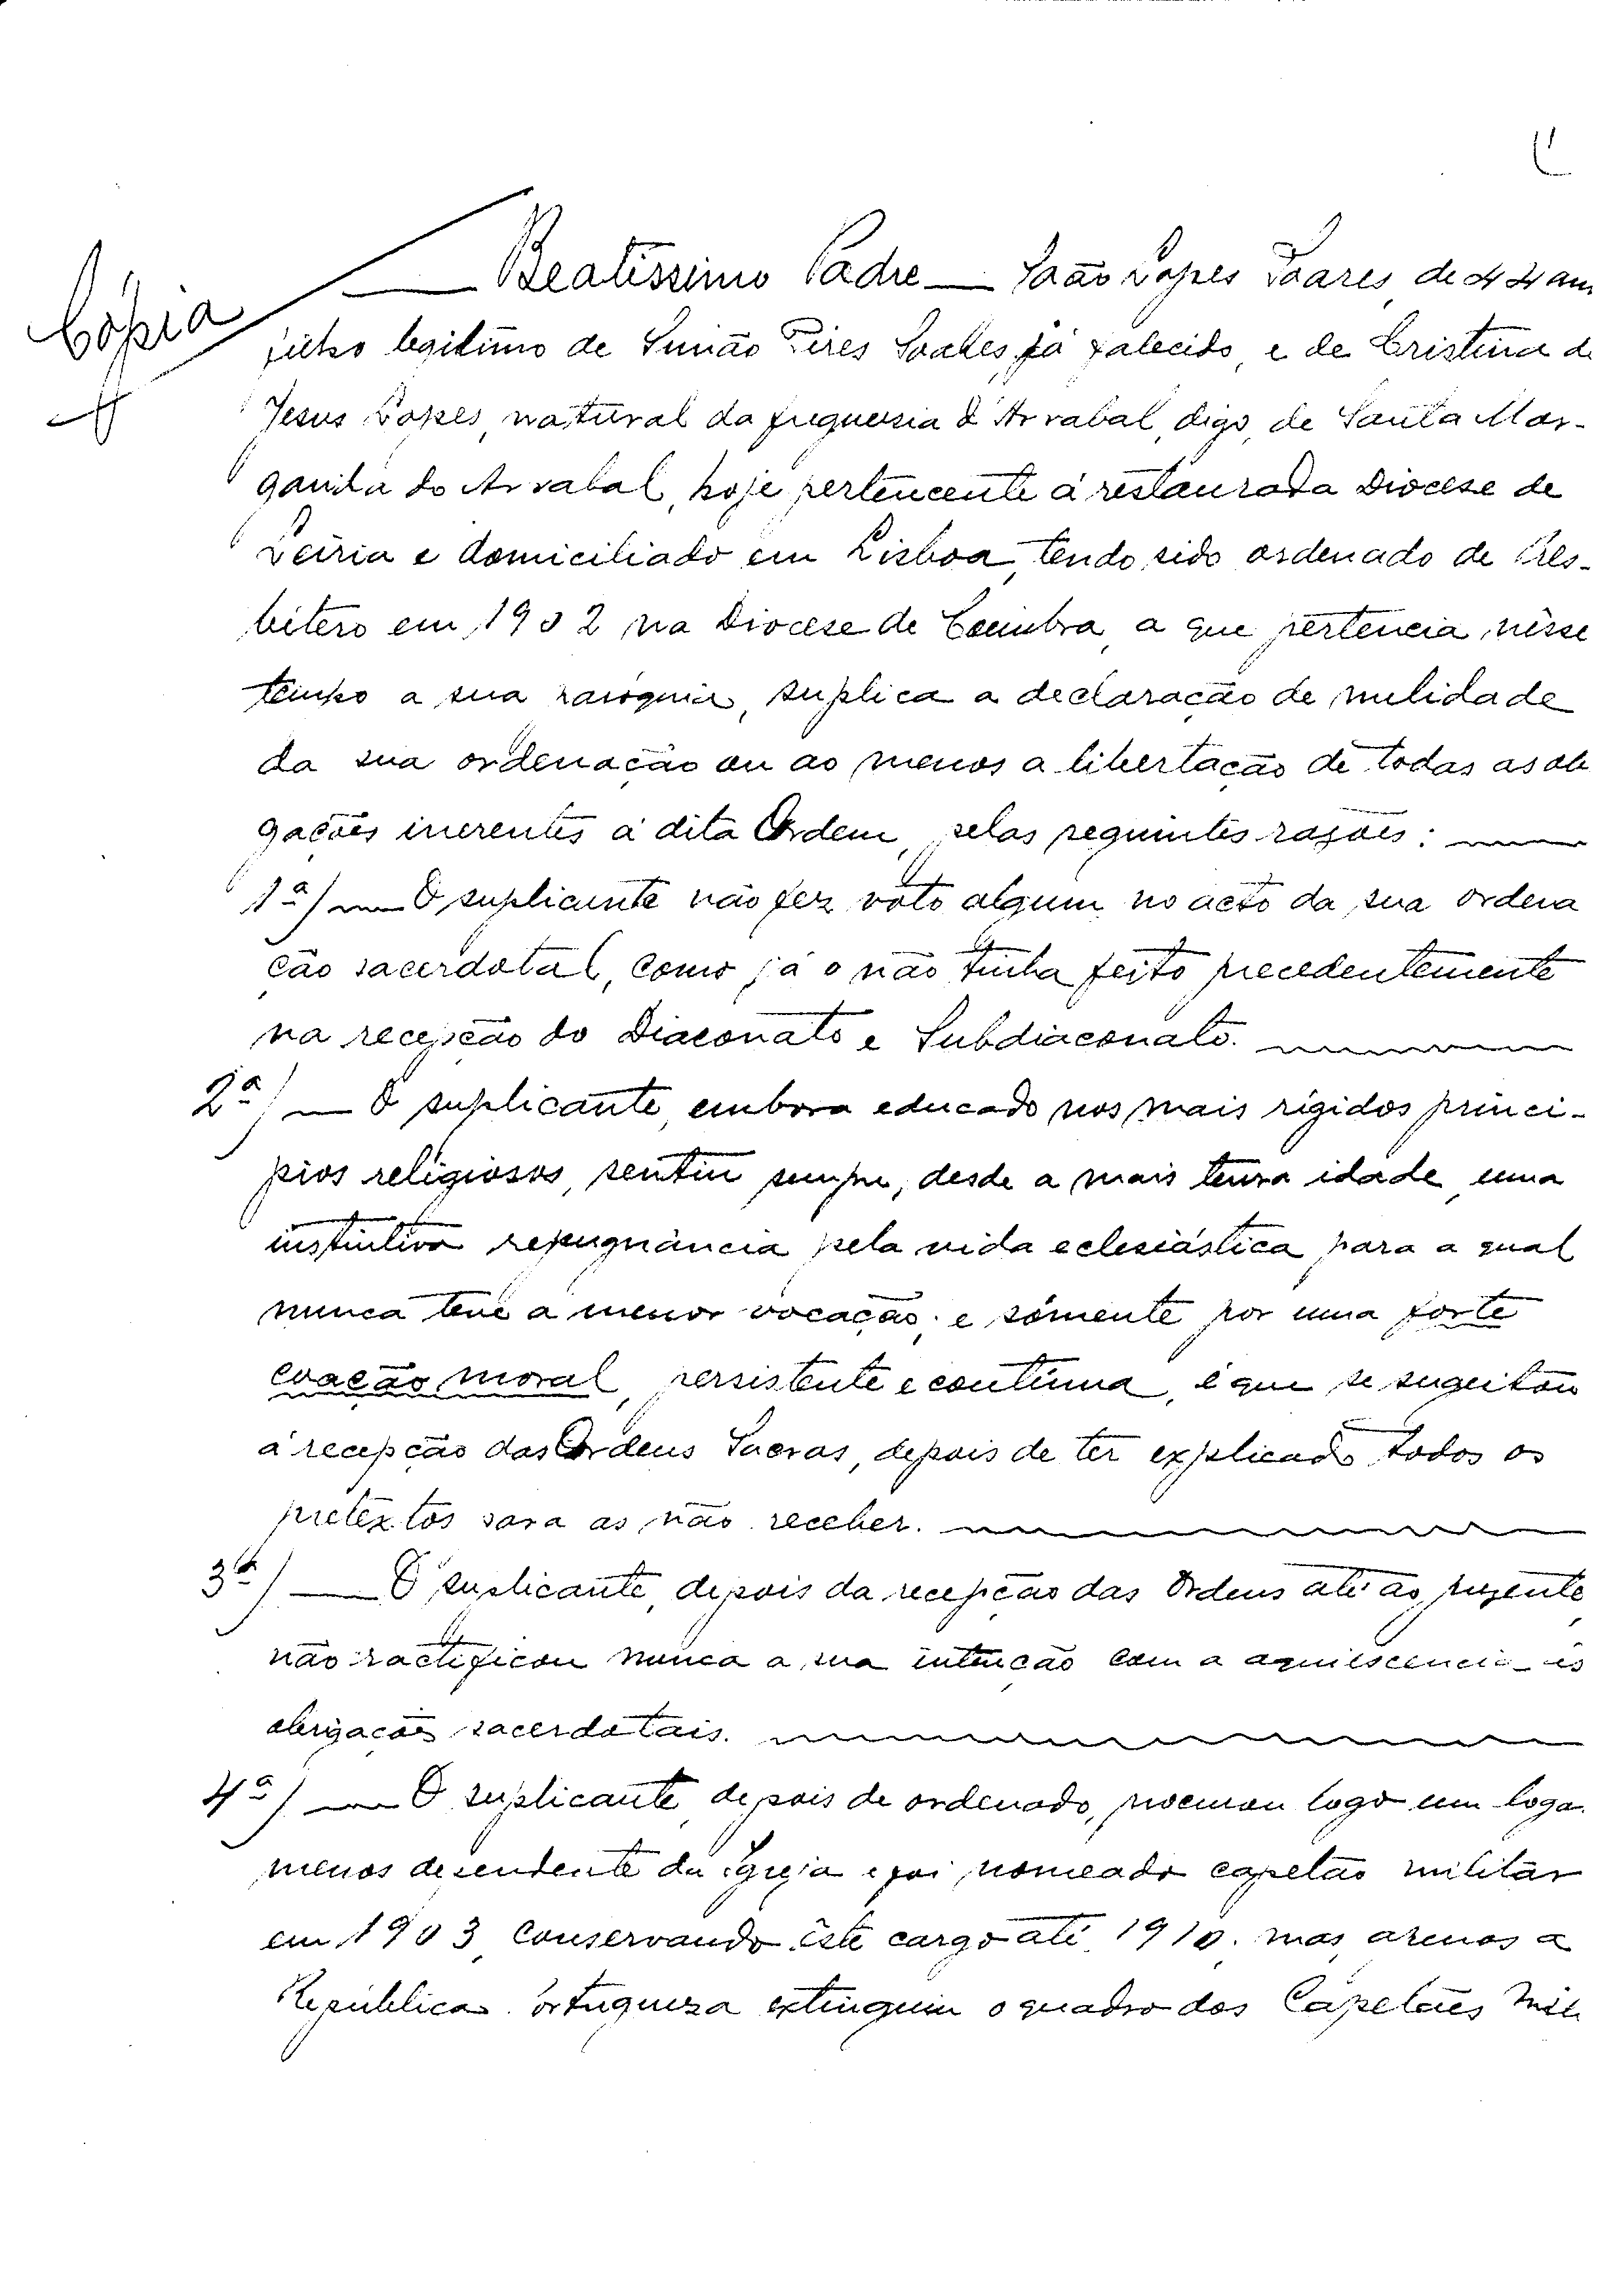 Cópia
Beatissimo Padre — João Lopes Soares, de 44 an
filho legitimo de Simão Pires Soares, já falecido, e de Cristina de
Jesus Lopes, natural da freguesia d'Arrabal, digo, de Santa Mar-
garida do Arrabal, hoje pertencente á restaurada Diocese de
Leiria e domiciliado em Lisboa, tendo sido ordenado de Pres-
bitero em 1902 na Diocese de Coimbra, a que pertencia nêsse
tempo a sua paróquia, suplica a declaração de nulidade
da sua ordenação ou ao menos a libertação de todas as obri
gações inerentes á dita Ordem, pelas seguintes razões:
1ª) — O suplicante não fez voto algum no acto da sua ordena
ção sacerdotal, como já o não tinha feito precedentemente
na recepção do Diaconato e Subdiaconato.
2ª) — O suplicante, embora educado nos mais rigidos princi-
pios religiosos, sentiu sempre, desde a mais tenra idade, uma
instintiva repugnância pela vida eclesiástica para a qual
nunca teve a menor vocação; e sómente por uma forte
coação moral, persistente e continua, é que se sugeitou
á recepção das Ordens Sacras, depois de ter explicado todos os
pretextos para as não receber.
3ª) — O suplicante, depois da recepção das Ordens até ao presente,
não ractificou nunca a sua intenção com a aquiescencia ás
obrigações sacerdotais.
4ª) — O suplicante, depois de ordenado, procurou logo um logar
menos dependente da Igreja e foi nomeado capelão militar
em 1903, conservando êste cargo até 1910; mas, apenas a
República Portuguesa extinguiu o quadro dos Capelães Mili